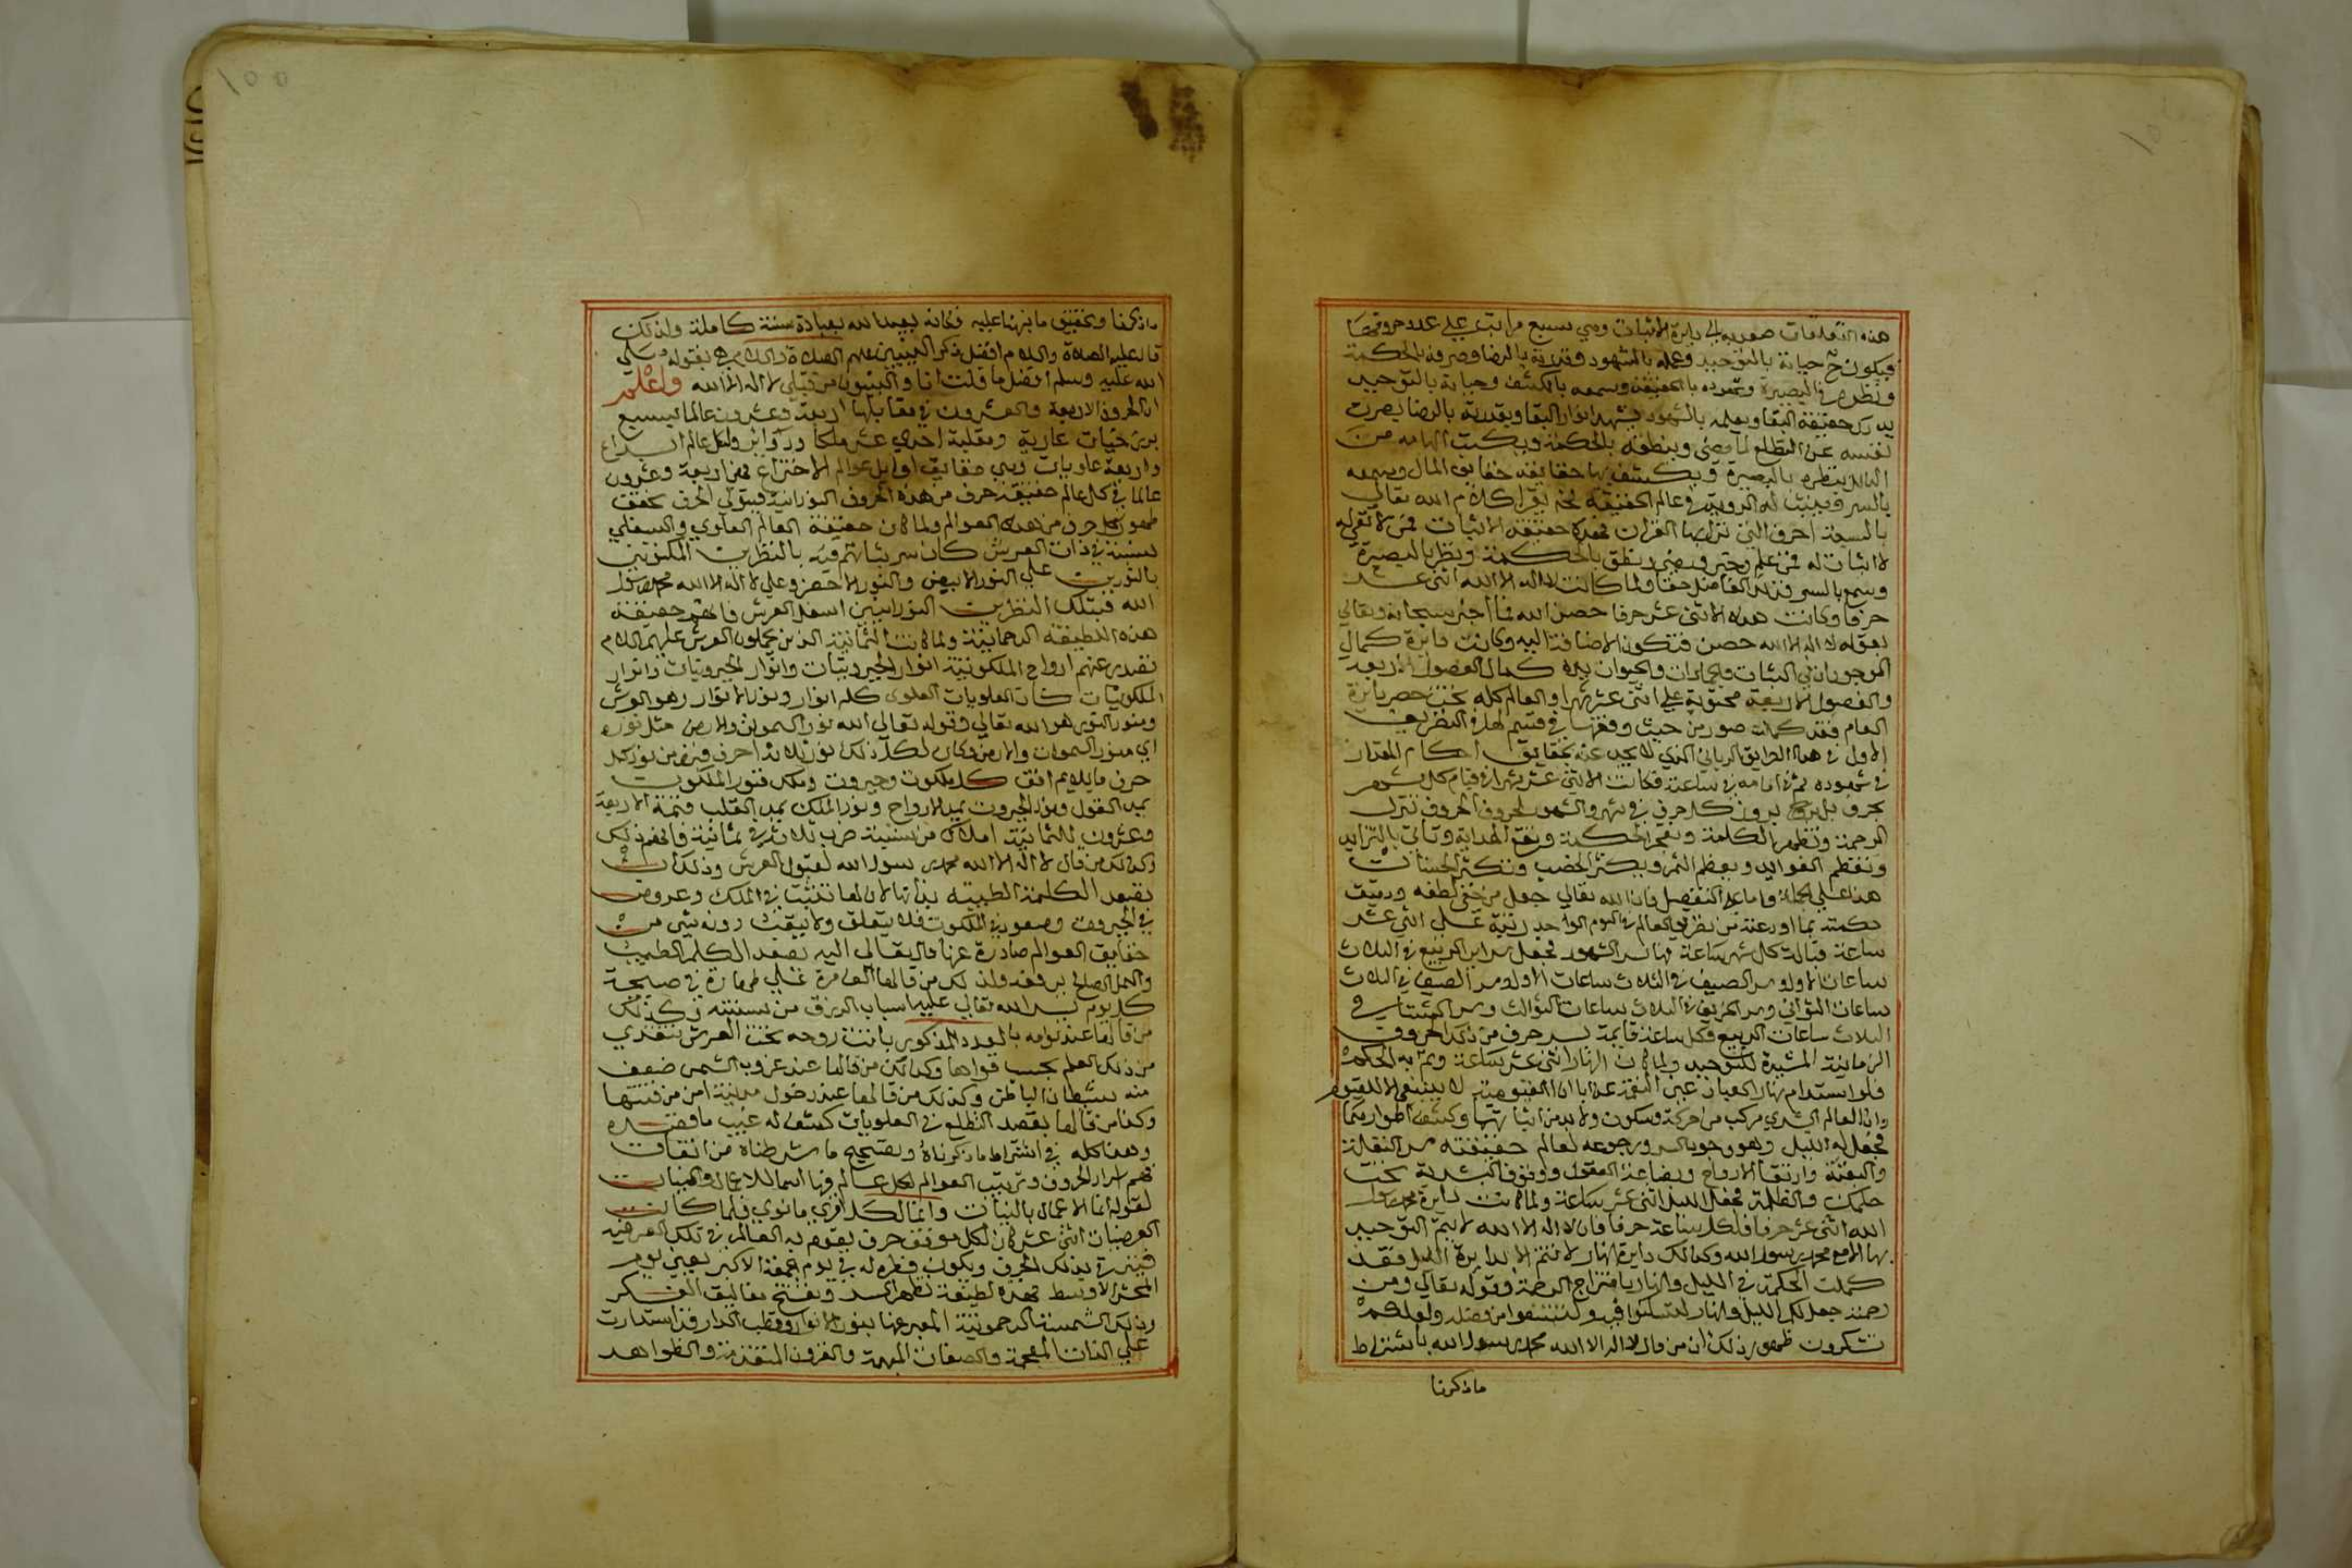 هذه التعلقات صعوده الى دايرة الاثبات وهي سبع مراتب على عدد حروفها
فيكون ح حياته بالتوحيد وعلمه بالشهود وقدرته بالرضا وصرفه بالحكمة
ونظره في البصيرة وشهوده بالحقيقة وسمعه بالكشف وحياته بالتوحيد
يدرك حقيقة البقا وبعلمه بالشهود يشهد انوار البقا وبقدرته بالرضا يصرف
نفسه عن التطلع لما مضى وبنطقه بالحكمة ويكتب الهامه من
بنظره بالبصيرة ويكشف بها حقايقه حقايق المال وبسمعه
بالسر فيثبت له الرويه في عالم الحقيقة كلام الله تعالى
بالسبعة احرف التي نزل بها القران فهذه حقيقة الاثبات فمن لا
لا اثبات له فمن علم وخبر ورضى ونطق بالحكمة ونظر بالبصيرة
وسمع بالسر فذلك القايل حقا ولما كانت لا اله الا الله اثنى عشر
حرفا وكانت هذه الاثنى عشر حرفا حصن الله كما اخبر سبحانه وتعالى
بقوله لا اله الا الله حصني فتكون الاضافة اليه وكانت دايرة كمال
الموجودات في النبات والجمادات والحيوان بيده كمال الفصول الاربعة
والفصول الاربعة محتوية على اثنى عشر شهرا والعالم كله تحت حصر دايرة
العام فقد كملت صور من حيث وقفتها في قسم اهل النظر
الاول في هذا الطريق الرباني الذي لا يحد عنه بحقايق احكام المقدار
في شهوده ثم اقامه في ساعته فكانت الاثنى عشر شهرا في قيام كل شهر
بحرف بروز كل حرف في شهر والشهور الحروف الحروف تنزل
الرحمة وتظهر الكلمة وتفجر الحكمة الهداية وتاتي بالتزايد
وتعظم الفوايد وبعظم الثمر ويكثر الخصب وتكثر الحسنات
هذا على الجملة واما على التفصيل فان الله تعالى جعل من خفي لطفه ودقيق
حكمته بما اودعته من نظر في العالم في اليوم الواحد رتبة على اثني عشر
ساعة قبالة كل شهر ساعة فيها سر الشهور فجعل سراير الربيع في الثلاث
ساعات الاول وسر الصيف في الثلاث ساعات الاول وسر الصيف في الثلاث
ساعات الثواني وسر الخريف في الثلاث ساعات الثوالث وسر الشتا في
الثلاث ساعات الربيع فكل ساعة قايمة بسر حرف من ذلك الحروف
الزمانية المشيرة للتوحيد ولما كان النهار اثنى عشر ساعة وتم به الحكمة
فلو استدام نهار العيان القيومية لا ينبغي الا للقيوم
وان العالم البشري مركب من حركة وسكون ولا بد من اثباتها وكشف اطوارهما
فجعل له الليل وهو رجوعه لعالم حقيقته سر النقلة
وارتقا الارواح وبضاعة العقول ووقوف البشرية تحت
حكمة والظلمة فجعل الليل اثنى عشر ساعة ولما كانت دايرة محمد رسول
الله اثنى عشر حرفا فلكل ساعة حرفا فان لا اله الا الله لا يتم التوحيد
بها الا مع محمد رسول الله وكذلك دايرة النهار لا تتم الا بدايرة الليل فقد
كملت الحكمة في الليل والنهار بامتزاج الرحمة وقوله تعالى ومن
رحمته جعل لكم الليل والنهار لتسكنوا فيه ولتبتغوا من فضله ولعلكم
تشكرون ظهور ذلك ان من قال لا اله الا الله محمد رسول الله باشتراط
ماذكرنا
ماذكرنا وتحقيق ما نبهنا عليه فكانه يعبد الله بعبادة سنة كاملة ولذلك
قال عليه الصلاة والسلام افضل ذكر النبيين عليهم الصلاة والسلام بقوله صلى
الله عليه وسلم افضل ما قلت انا والنبيون من قبلي لا اله الا الله واعلم
ان الحروف الاربعة والعشرون في مقابلتها اربعة وعشرون عالما
واربعة علويات وهي حقايق اوايل عوالم الاختراع فهن اربعة وعشرون
عالما في كل عالم حقيقة حرف من هذه الحروف النورانية الحرف تحقيق
ظهور كل حرف من هذه العوالم ولما كان حقيقة العالم العلوي والسفلي
نسبته في ذات العرش كان سر ثباتهم فيه بالنظرين المكنونين
بالنورين على النور الابيض والنور الاخضر وعلى لا اله الا الله محمد رسول
الله فبتلك النظرين النورانيين استقل العرش فافهم حقيقة
هذه اللطيفة الرحمانية ولما كانت الثمانية الذين يحملون العرش عليهم السلام
ارواح الملكوتية انوار الجبروتيات وانوار الجبروتيات وانوار
الملكوتيات كانت العلويات العلوى كله انوار ونور الانوار وهو العرش
ومنور النور هو الله تعالى وقوله تعالى الله نور السموات والارض مثل نوره
اي منور السموات والارض وكان لكل ذلك نور ثلاثة احرف من نور كل
حرف ما يلايم افق كل ملكوت وجبروت وملك فنور الملكوت
يمد العقول ونور الجبروت يمد الارواح ونور الملك يمد القلب فتمة الاربعة
وعشرون للثمانية املاك من نسبة ضرب ثلاثة في ثمانية فافهم ذلك
وكذلك من قال لا اله الا الله محمد رسول الله لقبول العرش وذلك ان
تصعد الكلمة الطيبة بذاتها لان لها تثبت في الملك وعروض
في الجبروت وصعود في الملكوت فلا يتعلق ولا يبقى دونه شي من
حقايق العوالم صادرة عنها قال تعالى اليه يصعد الكلم الطيب
والعمل الصالح يرفعه ولذلك من قالها الف مرة على طهارة في صبيحة
كل يوم يسر الله تعالى عليه اسباب الرزق من نسبته وكذلك
من قالها عند نومه بالعدد المذكور باتت روحه تحت العرش تتغذى
من ذلك العلم بحسب قواها وكذلك من قالها عند غروب الشمس ضعف
منه شيطان الباطن وكذلك من قالها عند دخول مدينة امن من فتنتها
وكذا من قالها بقصد التطلع في العلويات كشف له غيب ما قصده
وهذا كله في اشتراط ماذكرناه وتصحيح ما شرطناه من اتفاق
فهم اسرار الحروف وترتيب العوالم لكل عالم وانها اسما للاعمال والنيات
لقوله انما الاعمال بالنيات وانما لكل امرئ ما نوى فلما كانت
العرصات اثنى عشر كان لكل موقف حرف يقوم به العالم في تلك العرصة
بذلك الحرف ويكون فطره له في يوم الجمعة الاكبر يعني يوم
المحشر الاوسط فهذه لطيفة تطهر الجسد وتفتح مغاليق الفكر
وذلك الشمسة الرحموتية المعبر عنها بنور الانوار وقطب المدار قد استدارت
على الذات المعجمة والصفات المبهمة والقرون المتقدمة والظواهر